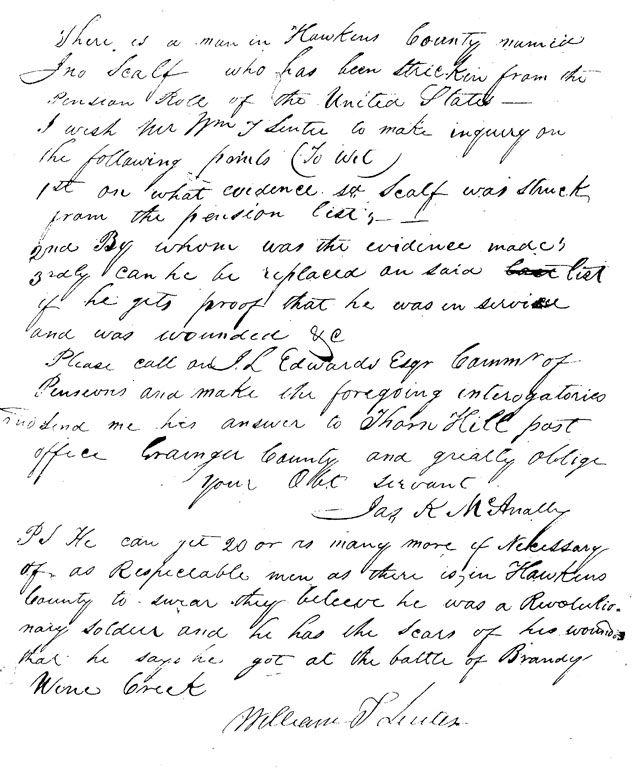 There is a man in Hawkins County named
Jno Scalf who has been strickin from the
Pension Roll of the United States —
I wish Mr Wm T Senter to make inquiry on
the following points (To Wit)
1st on what evidence sd Scalf was struck
from the pension list; —
2nd By whom was the evidence made;
3rdly can he be replaced on said list
if he gets proof that he was in service
and was wounded &c
Please call on J. L Edwards Esqr Commr of
Pensions and make the foregoing interogatories
and send me his answer to Thorn Hill post
office Grainger County and greatly oblige
Your Obt servant
Jas K McAnally
PS He can get 20 or as many more if Necessary
of as Respectable men as there is in Hawkins
County to swear they beleeve he was a Revolutio-
nary Soldier and he has the Scars of his wounds
that he says he got at the battle of Brandy
Wine Creek
William T Senter